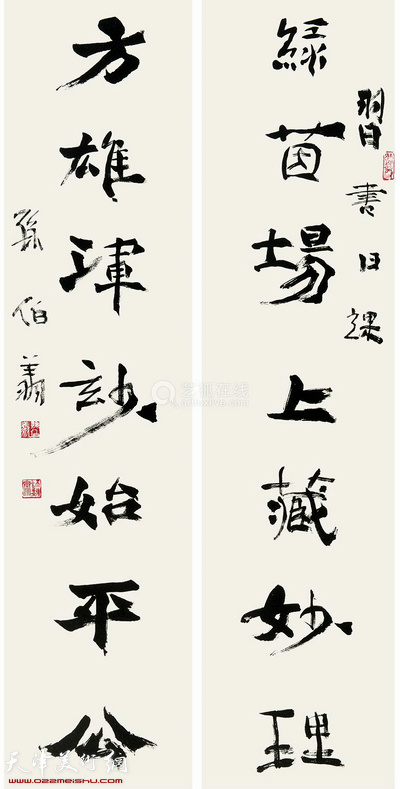 習書日課
綠茵場上藏妙理
方雄渾玅始平公
孫伯翔
天津美术網
www.022meishu.com